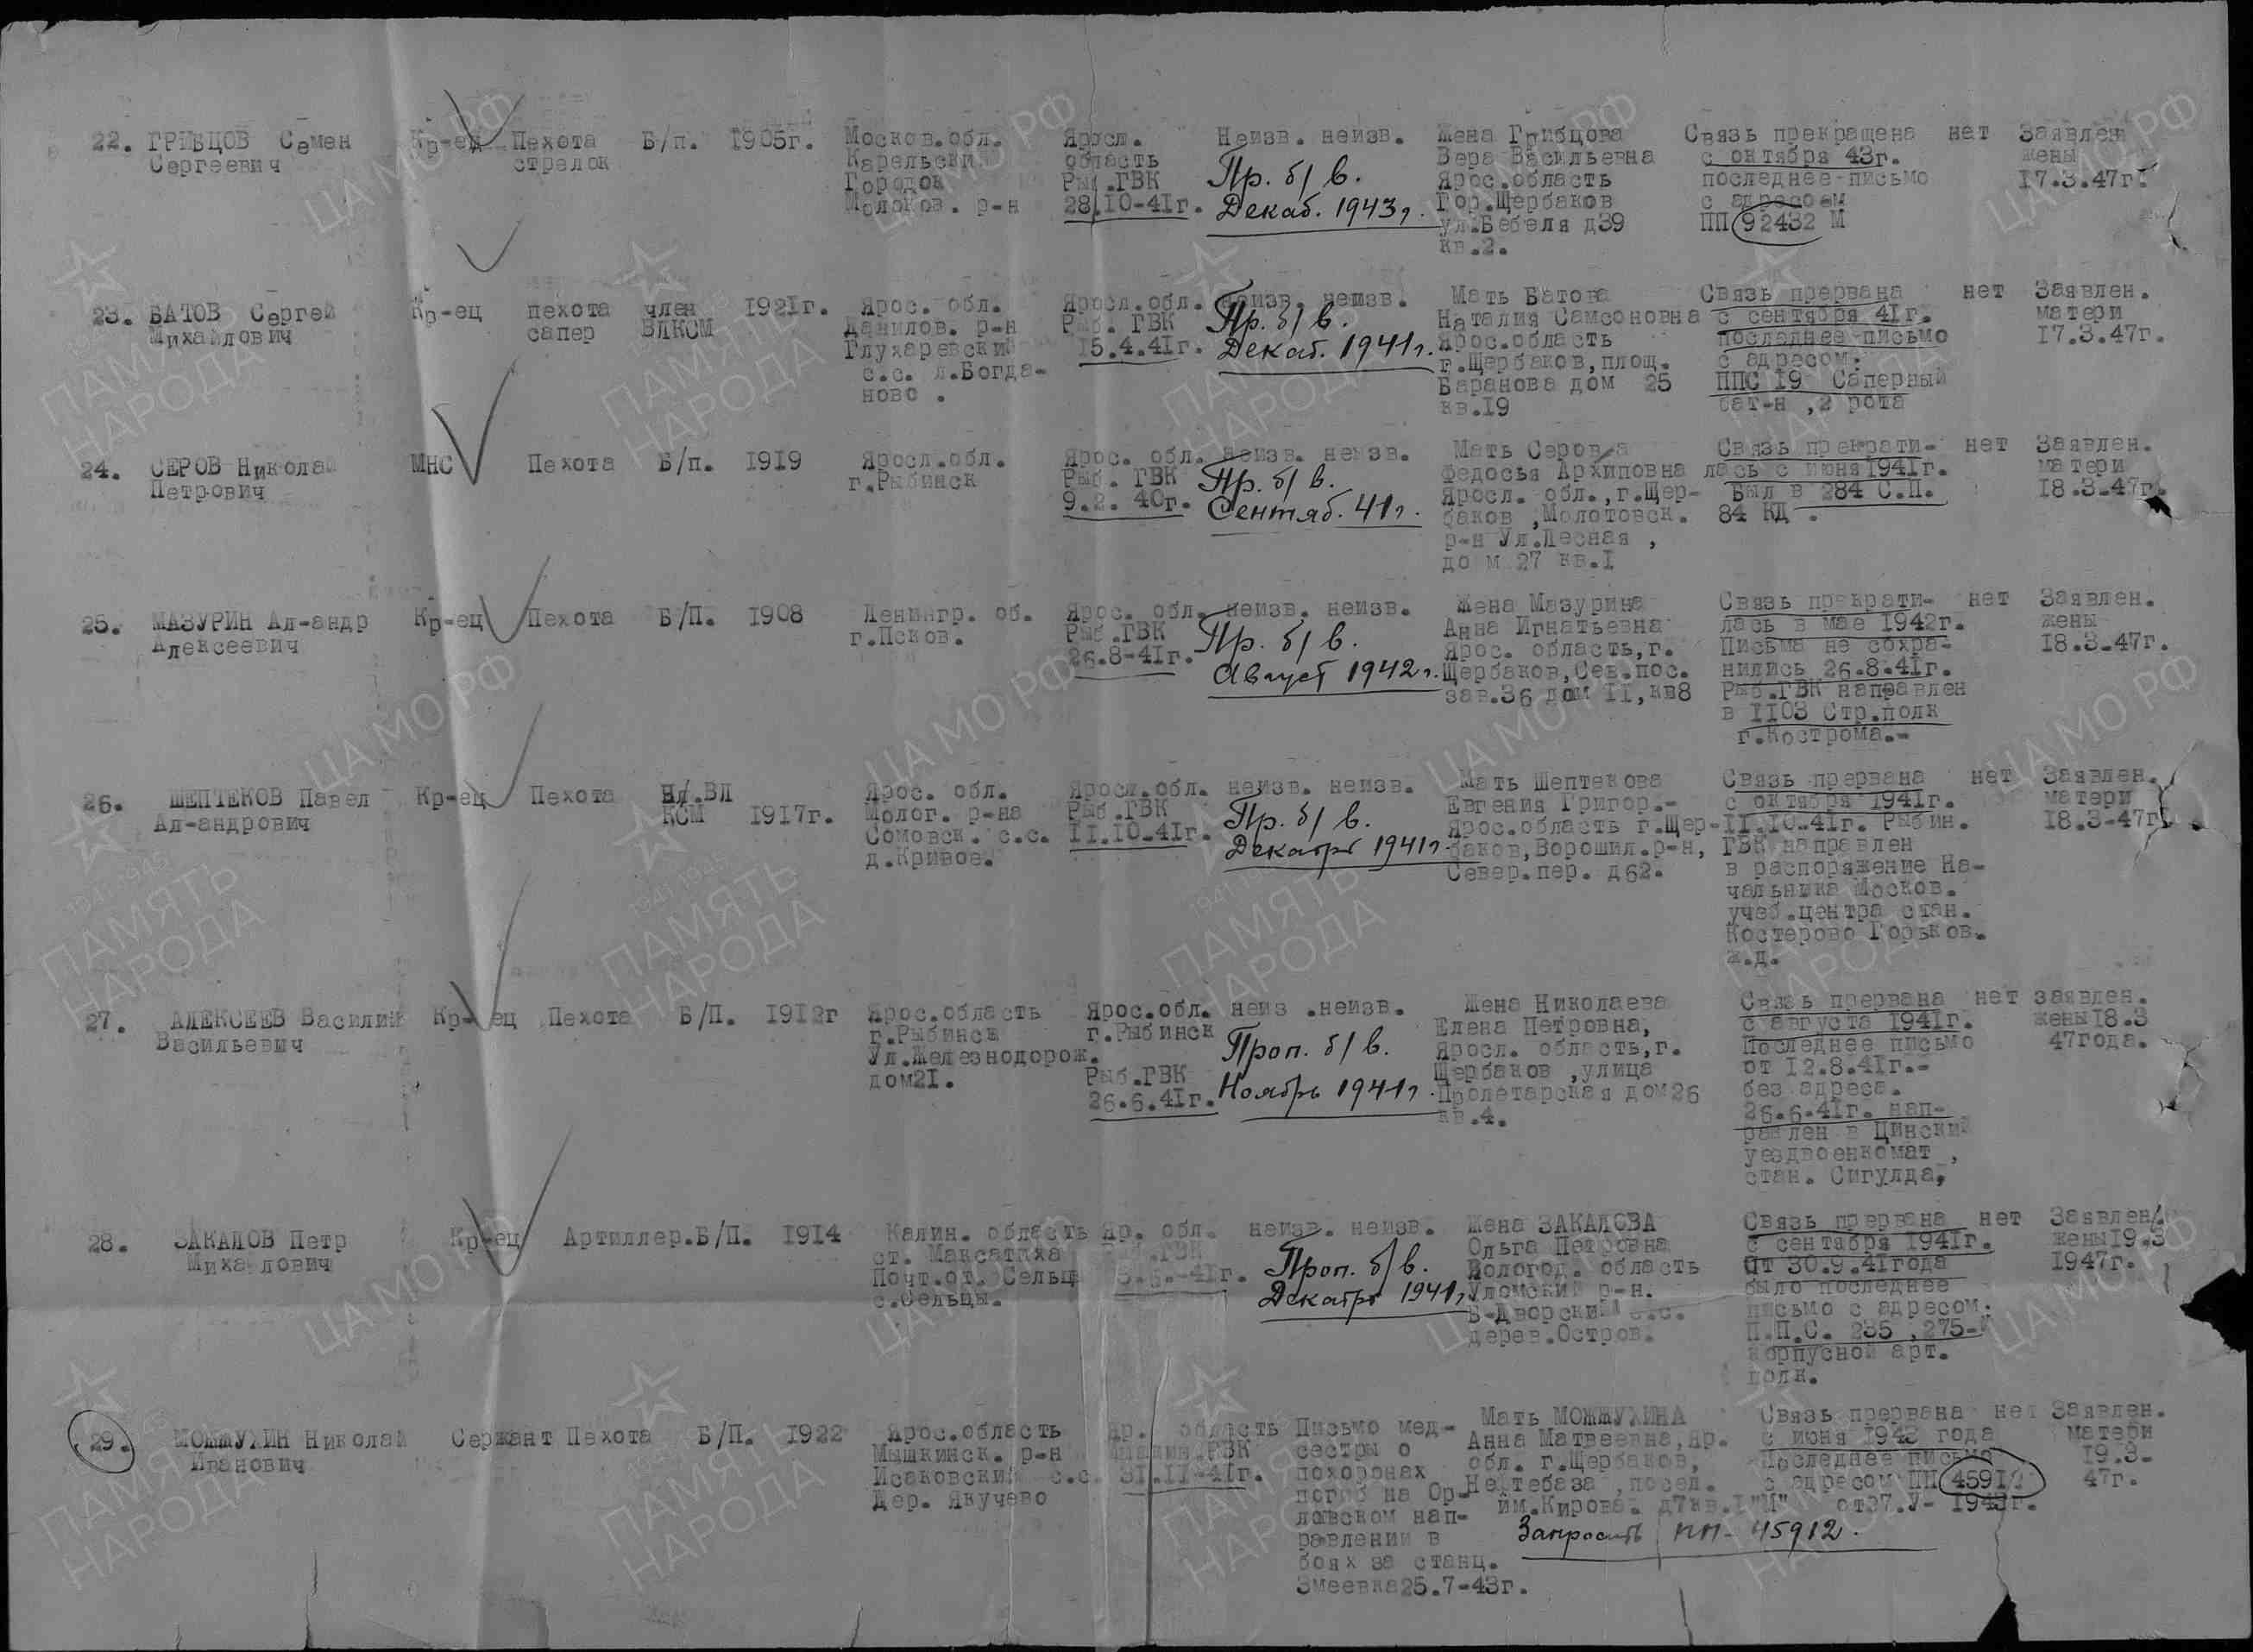 22. ГРИБЦОВ Семен Кр-ец Пехота Б/п. 1905г. Москов.обл. Яросл. Неизв. неизв. Жена Грибцова Связь прекращена нет Заявлен
Сергеевич стрелок Карельский область Вера Васильевна с октября 43г. жены
Городок Рыб.ГВК Пр. б/в. Ярос.область последнее письмо 17.3.47г.
Молоков. р-н 28.10-41г. Декаб. 1943г. Гор.Щербаков с адресом
ул.Бебеля д39 ПП 92432 М
кв.2.
23. БАТОВ Сергей Кр-ец пехота член 1921г. Ярос. обл. Яросл.обл. неизв. неизв. Мать Батова Связь прервана нет Заявлен.
Михайлович сапер ВЛКСМ Данилов. р-н Рыб. ГВК Пр. б/в. Наталия Самсоновна с сентября 41г. матери
Глухаревский 15.4.41г. Декаб. 1941г. Ярос.область последнее письмо 17.3.47г.
с.с. д.Богда- г.Щербаков,площ. с адресом:
ново . Баранова дом 25 ППС 19 Саперный
кв.19 бат-н ,2 рота
24. СЕРОВ Николай МНС Пехота Б/п. 1919 Яросл.обл. Ярос. обл. неизв. неизв. Мать Серова Связь прекрати- нет Заявлен.
Петрович г.Рыбинск Рыб. ГВК Пр. б/в. Федосья Архиповна лась с июня 1941г. матери
9.2. 40г. Сентяб. 41г. Яросл. обл.,г.Щер- Был в 284 С.П. 18.3-47г.
баков ,Молотовск. 84 КД .
р-н Ул.Лесная ,
до м 27 кв.I
25. МАЗУРИН Ал-андр Кр-ец Пехота Б/П. 1908 Ленингр. об. Ярос. обл. неизв. неизв. Жена Мазурина Связь прекрати- нет Заявлен.
Алексеевич г.Псков. Рыб.ГВК Пр. б/в. Анна Игнатьевна лась в мае 1942г. жены
26.8-41г. Август 1942г. Ярос. область,г. Письма не сохра- 18.3-47г.
Щербаков,Сев.пос. нились 26.8.41г.
зав.36 дом II,кв8 Рыб.ГВК направлен
в 1103 Стр.полк
г.Кострома.-
26. ШЕПТЕКОВ Павел Кр-ец Пехота ВЛ Ярос. обл. Яросл.обл. неизв. неизв. Мать Шептекова Связь прервана нет Заявлен.
Ал-андрович КСМ 1917г. Молог. р-на Рыб.ГВК Пр. б/в. Евгения Григор.- с октября 1941г. матери
Сомовск. с.с. II.10-41г. Декабрь 1941г. Ярос.область г.Щер- II.10-41г. Рыбин. 18.3-47г
д.Кривое. баков,Ворошил.р-н, ГВК направлен
Север.пер. д62. в распоряжение На-
чальника Москов.
учеб.центра стан.
Костерово Горьков.
ж.д.
27. АЛЕКСЕЕВ Василий Кр-ец Пехота Б/П. 1912г Ярос.область Ярос.обл. неиз .неизв. Жена Николаева Связь прервана нет заявлен.
Васильевич г.Рыбинск г.Рыбинск Елена Петровна, с августа 1941г. жены18.3
Ул.Железнодорож. Проп. б/в. Яросл. область,г. Последнее письмо 47года.
дом21. Рыб.ГВК Щербаков ,улица от 12.8.41г.-
26.6.41г. Ноябрь 1941г. Пролетарская дом26 без адреса.
кв.4. 26.6-41г. нап-
равлен в Цинский
уездвоенкомат ,
стан. Сигулда,
28. ЗАКАЛОВ Петр Кр-ец Артиллер.Б/П. 1914 Калин. область Яр. обл. неизв. неизв. Жена ЗАКАЛОВА Связь прервана нет Заявлен.
Михайлович ст. Максатиха ГВК Ольга Петровна с сентября 1941г. жены19.3
Почт.от. Сельц -41г. Проп. б/в. Вологод. область От 30.9.41года 1947г.
с.Сельцы. Декабрь 1941г. Уломский р-н. было последнее
В-Дворский с.с. письмо с адресом:
дерев.Остров. П.П.С. 235 ,275-й
корпусной арт.
полк.
29. МОЖЖУХИН Николай Сержант Пехота Б/П. 1922 Ярос.область Яр. область Письмо мед- Мать МОЖЖУХИНА Связь прервана нет Заявлен.
Иванович Мышкинск. р-н РВК сестры о Анна Матвеевна,Яр. с июня 1943 года матери
Исаковский с.с. 31.II-41г. похоронах обл. г.Щербаков, Последнее письмо 19.3-
Дер. Якучево погиб на Ор- Нефтебаза ,посел. с адресом ПП 45912 47г.
ловском нап- им.Кирова. д7кв.I "М" от27.У- 1943г.
равлении в Запросить ПП- 45912.
боях за станц.
Змеевка25.7-43г.
ЦА МО РФ
1941 1945
ПАМЯТЬ
НАРОДА